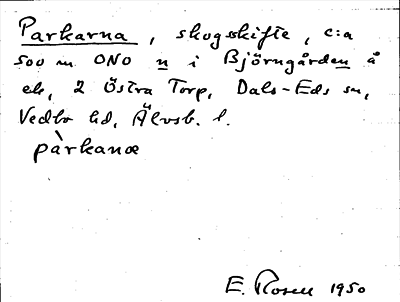 Parkarna, skogsskifte, c:a
500 m ONO n i Björngården å
ek, 2 Östra Torp, Dals-Eds sn,
Vedbo hd, Älvsb. l.
pàrkanæ
E. Rosell 1950